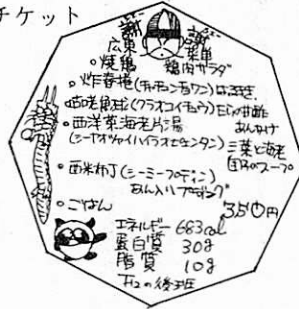 チケット
広東 菜単
焼鶏 鶏肉サラダ
炸春捲(チャチョンチョワン)はるまき
咕咾魚球(クラオコイチュウ)たらの甘酢あんかけ
西洋菜海老片湯
(シーヤオツァイハイラオエンタン)三葉と海老
のスープ
西米布丁(シーミープティン)
あん入りプディング
ごはん
350円
エネルギー 683cal
蛋白質 30g
脂質 10g
の後班